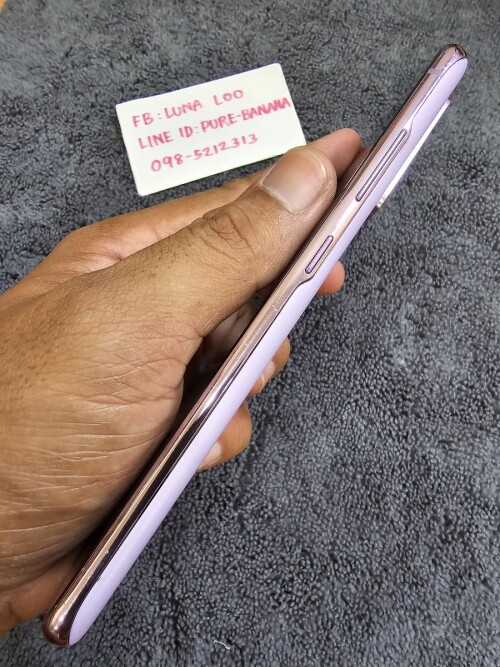 FB : LUNA LOO
LINE ID : PURE-BANANA
098-5212313